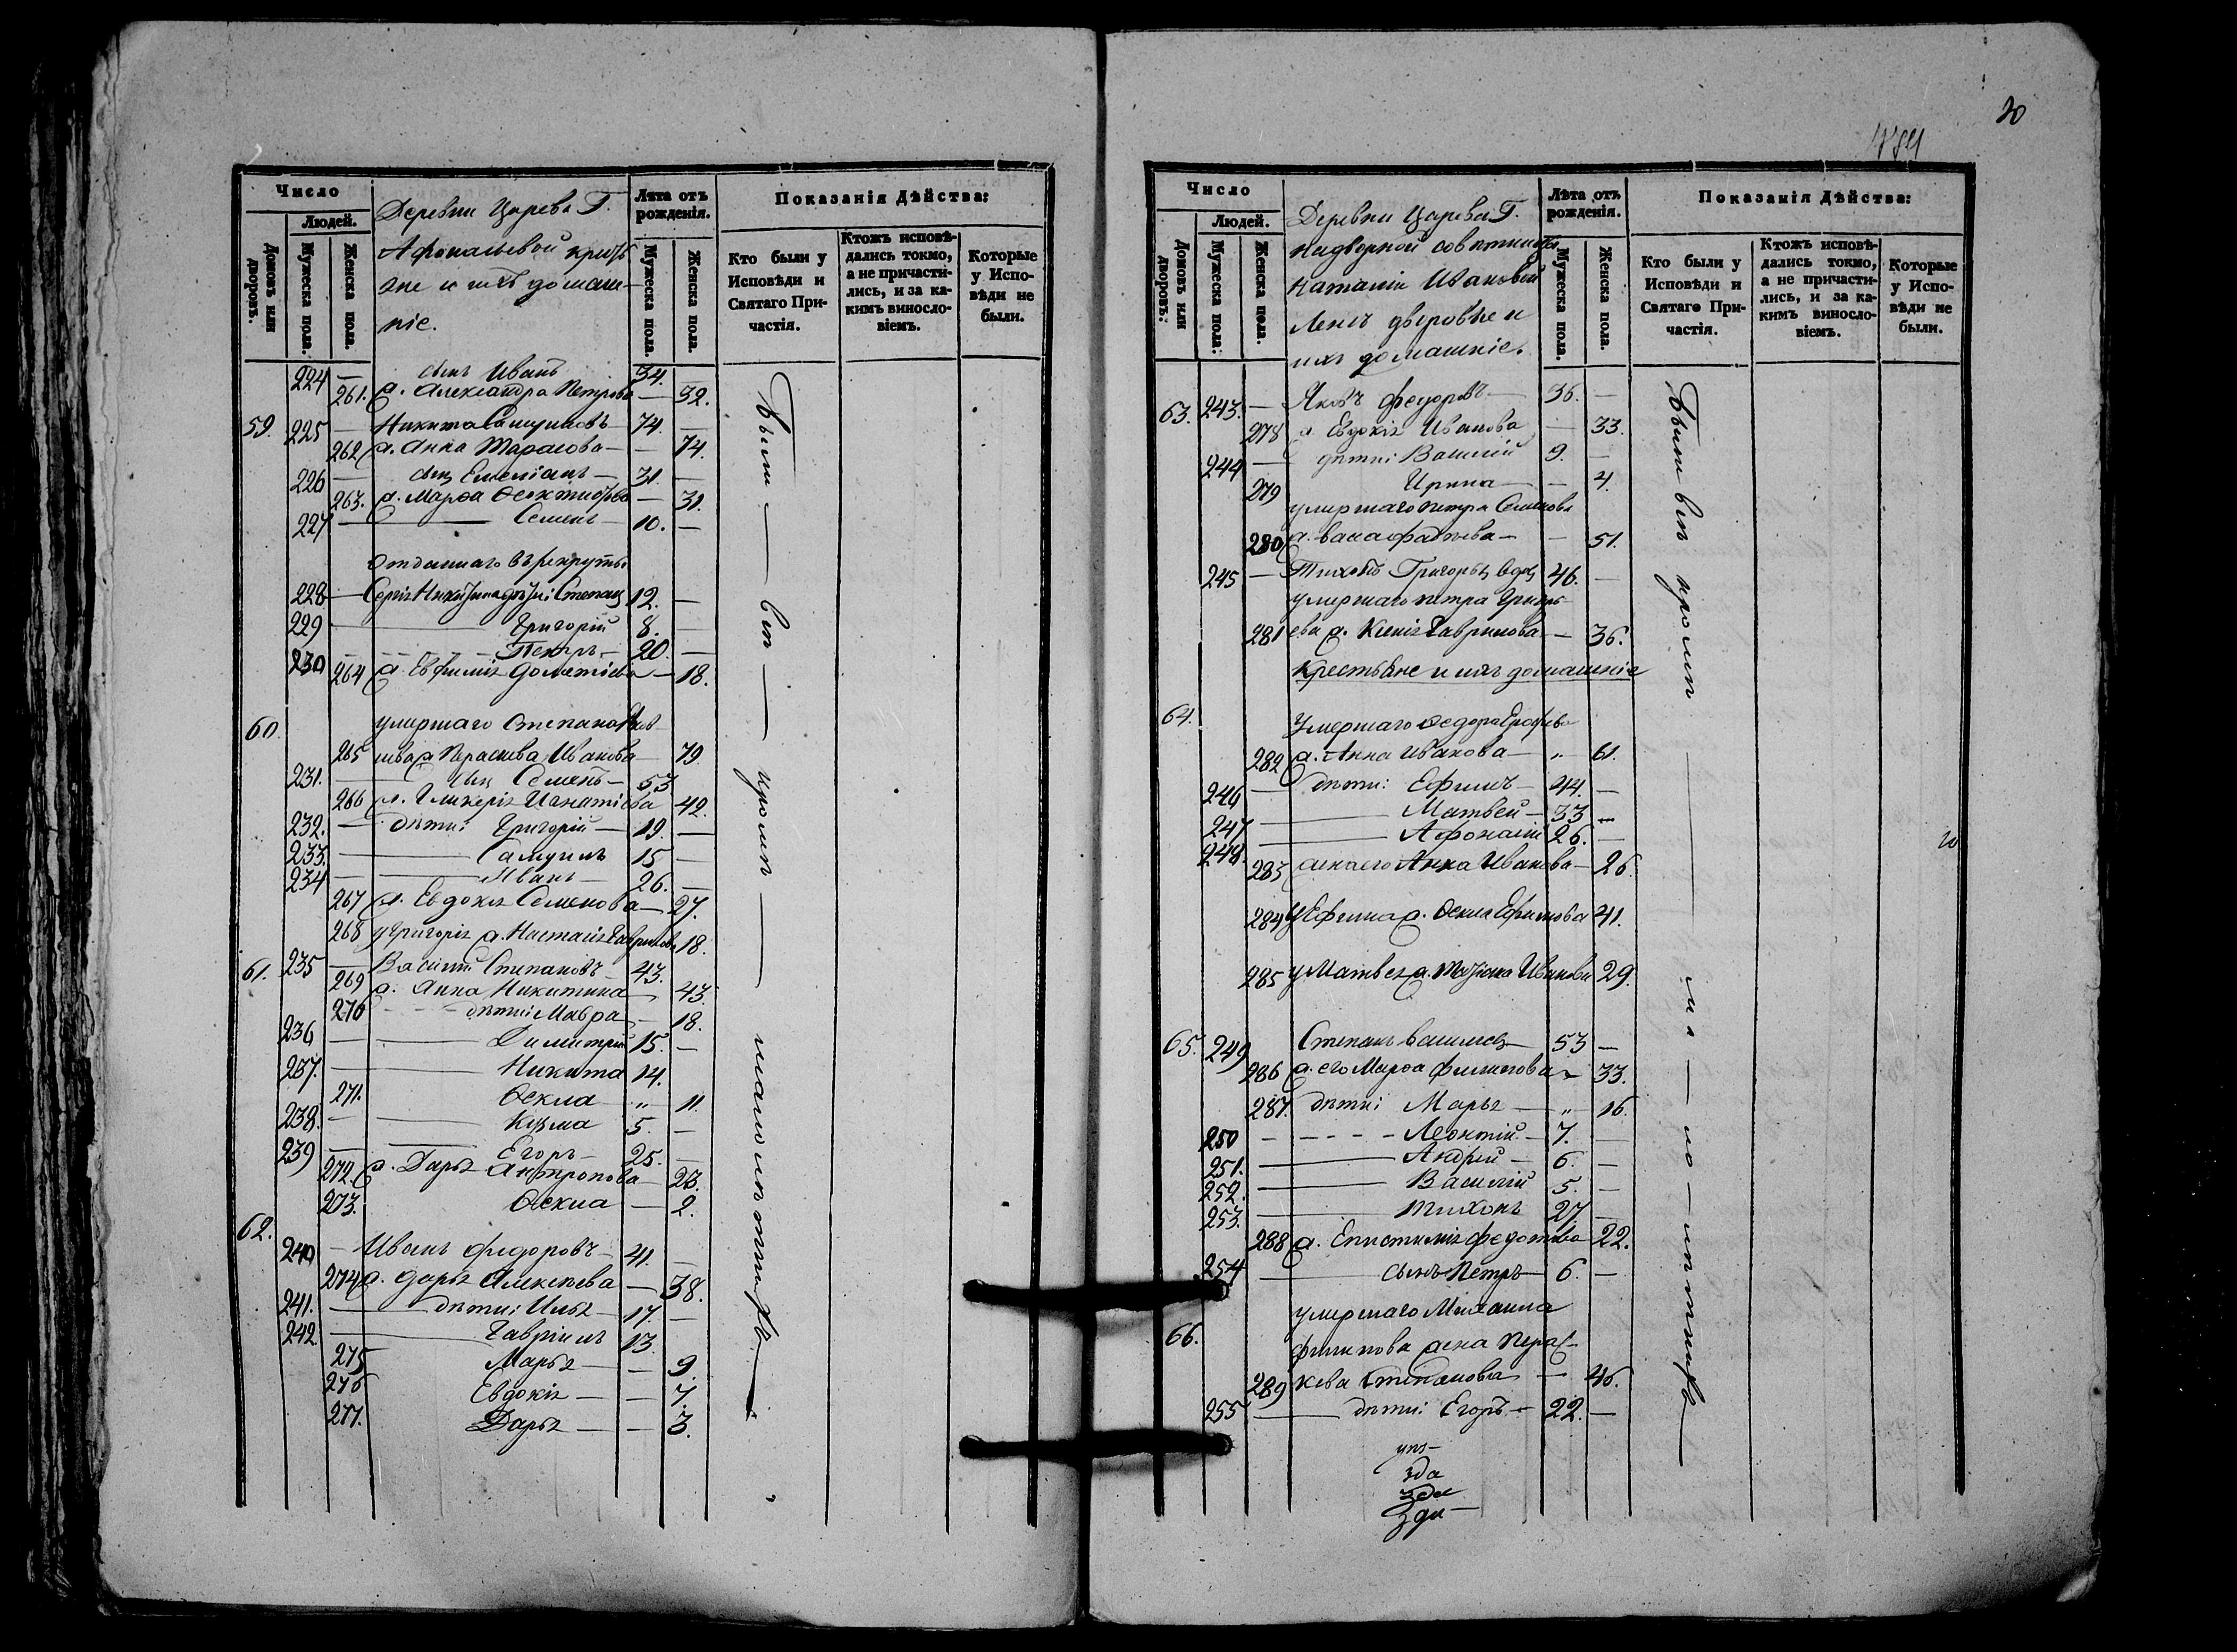 Число
Людей.
Домовъ или дворовъ.
Мужеска пола.
Женска пола.
Деревни Царева Г.
Афонасьевой крест
яне и ихъ домаш-
ніе.
Лѣта отъ рожденія.
Мужеска пола.
Женска пола.
Показанія Дѣйства:
Кто были у Исповѣди и Святаго При-частія.
Ктожъ исповѣ-дались токмо, а не причасти-лись, и за ка-кимъ винosло-віемъ.
Которые у Испо-вѣди не были.
224 — сынъ Иванъ 34.
261. ж. Александра Петрова — 32.
59. 225 — Никита Самуиловъ — 74. —
262 ж. Анна Тарасова — — 74.
226 — сынъ Емеліанъ — 31. —
263. ж. Марѳа Ѳеоктистова — 31.
227 — Семенъ — 10. —
Отданнаго въ рекруты
228 — Сергія Никитина дѣти: Степанъ 12. —
229 — Григорій 8. —
230 — Петръ — 20. —
264 ж. Евфимія Дометіева — 18.
60. умершаго Степана
265 ж. Параскева Иванова — 79.
231. — сынъ Семенъ — 53
266 ж. Гликерія Игнатіева 42.
232. — дѣти: Григорій — 19. —
233. — Самуилъ 15 —
234 — Иванъ — 26. —
267 ж. Евдокія Семенова — 27.
268 у Григорія ж. Настасія Гаврилова 18.
61. 235 — Василій Степановъ — 43.
269 ж. Анна Никитина — 43.
270 — дѣти: Мавра — 18.
236 — Димитрій 15. —
237. — Никита 14.
271. Ѳекла „ 11.
238. — Кузма 5. —
239 — Егоръ — 25. —
272. ж. Дарья Антропова — 23.
273. Ѳекла — 2.
62. 240 — Иванъ Федоровъ — 41. —
274 ж. Дарья Алексѣева — 38.
241. — дѣти: Илья — 17. —
242 — Гавріилъ 13.
275 Марья — — 9.
276 Евдокія — — 7.
277. Дарья — — 3.
Были — вси — кромѣ — малолѣтнихъ —
20
Число
Людей.
Домовъ или дворовъ:
Мужеска пола:
Женска пола.
Деревни Царева Г.
надворной совѣтницы
Наталіи Ивановой
Ленсъ дворовые и
ихъ домашніе.
Лѣта отъ рожденія.
Мужеска пола.
Женска пола.
Показанія Дѣйства:
Кто были у Исповѣди и Святаго При-частія.
Ктожъ исповѣ-дались токмо, а не причасти-лись, и за ка-кимъ виносло-віемъ.
Которые у Испо-вѣди не были.
63. 243. — Яковъ Федоровъ — 36. —
278 ж. Евдокія Иванова — 33.
244 — дѣти: Василій 9. —
279 Ирина — — 4.
умершаго Петра Семенова
280 ж. Васса Фадѣева — — 51.
245 — Тихонъ Григорьевъ вдов 46. —
умершаго Петра Григорь-
281 ева ж. Ксенія Гаврилова — 36.
Крестьяне и ихъ домашніе
64. Умершаго Ѳедора Ерофѣева
282 ж. Анна Иванова — „ 61.
246 — дѣти: Ефимъ — 44. —
247 — Матвей — 33 —
248 — Афонасій 26. —
283 жена его Анна Иванова — 26.
284 у Ефима ж. Ѳекла Ефимова 41.
285 у Матвея ж. Татіана Иванова 29.
65. 249 Степанъ Васильевъ — 53 —
286 ж. его Марѳа Филипова — 33.
287. дѣти: Марья — „ — 16.
250 — Леонтій — 7. —
251. — Андрей — 6. —
252. — Василій 5. —
253. — Тихонъ 27 —
288 ж. Епистимія Федотова 22.
254 — сынъ Петръ — 6. —
умершаго Михаила
66. Филипова жена Парас-
289 кева Степанова — 46.
255 — дѣти: Егоръ — 22. —
Были вси кромѣ — ма — ло — лѣтнихъ —
20